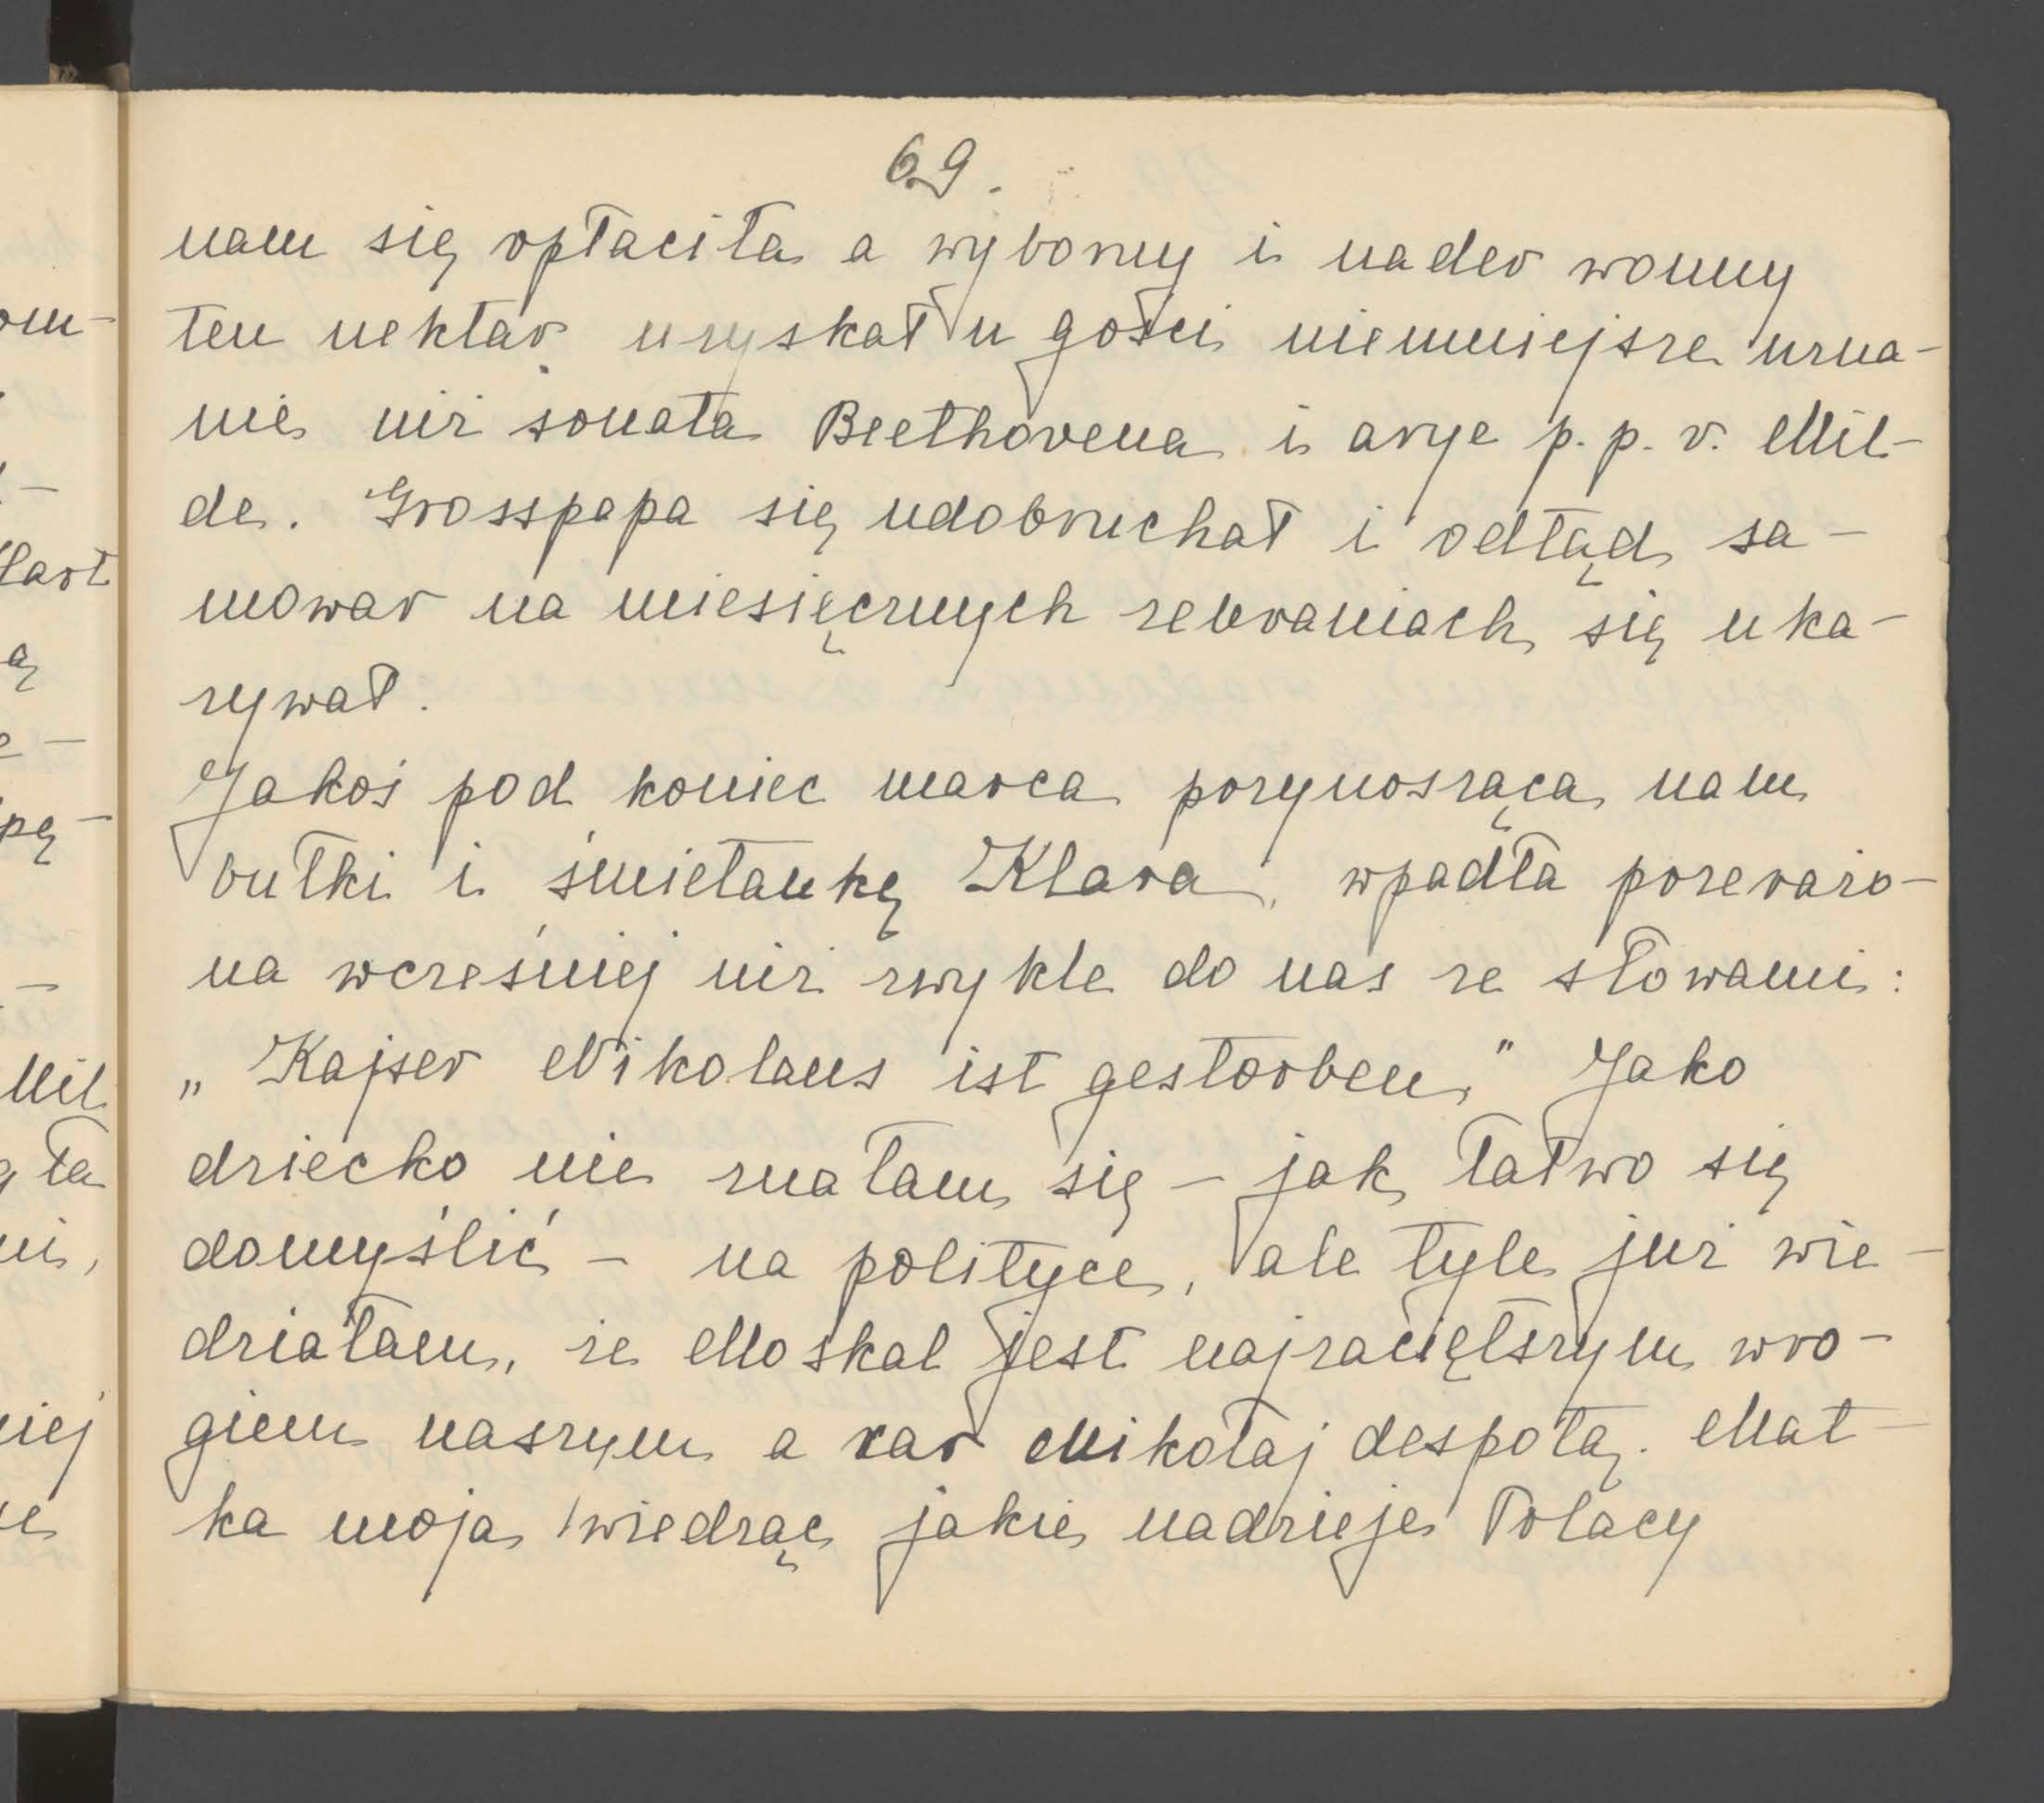 69.
nam się opłaciła a wyborny i nader wonny
ten nektar uzyskał u gości niemniejsze uzna-
nie niż sonata Beethovena i arye p. p. v. Mil-
de. Grosspapa się udobruchał i odtąd sa-
mowar na miesięcznych zebraniach się uka-
zywał.
Jakoś pod koniec marca przynosząca nam
bułki i śmietankę Klara, wpadła przerażo-
na wcześniej niż zwykle do nas ze słowami:
„Kajser Nikolaus ist gestorben." Jako
dziecko nie znałam się – jak łatwo się
domyślić – na polityce, ale tyle już wie-
działam, że Moskal jest najzaciętszym wro-
giem naszym a car Mikołaj despotą. Mat-
ka moja wiedząc jakie nadzieje Polacy
om-
-
ą
pę-
Mil
ła
ni,
niej